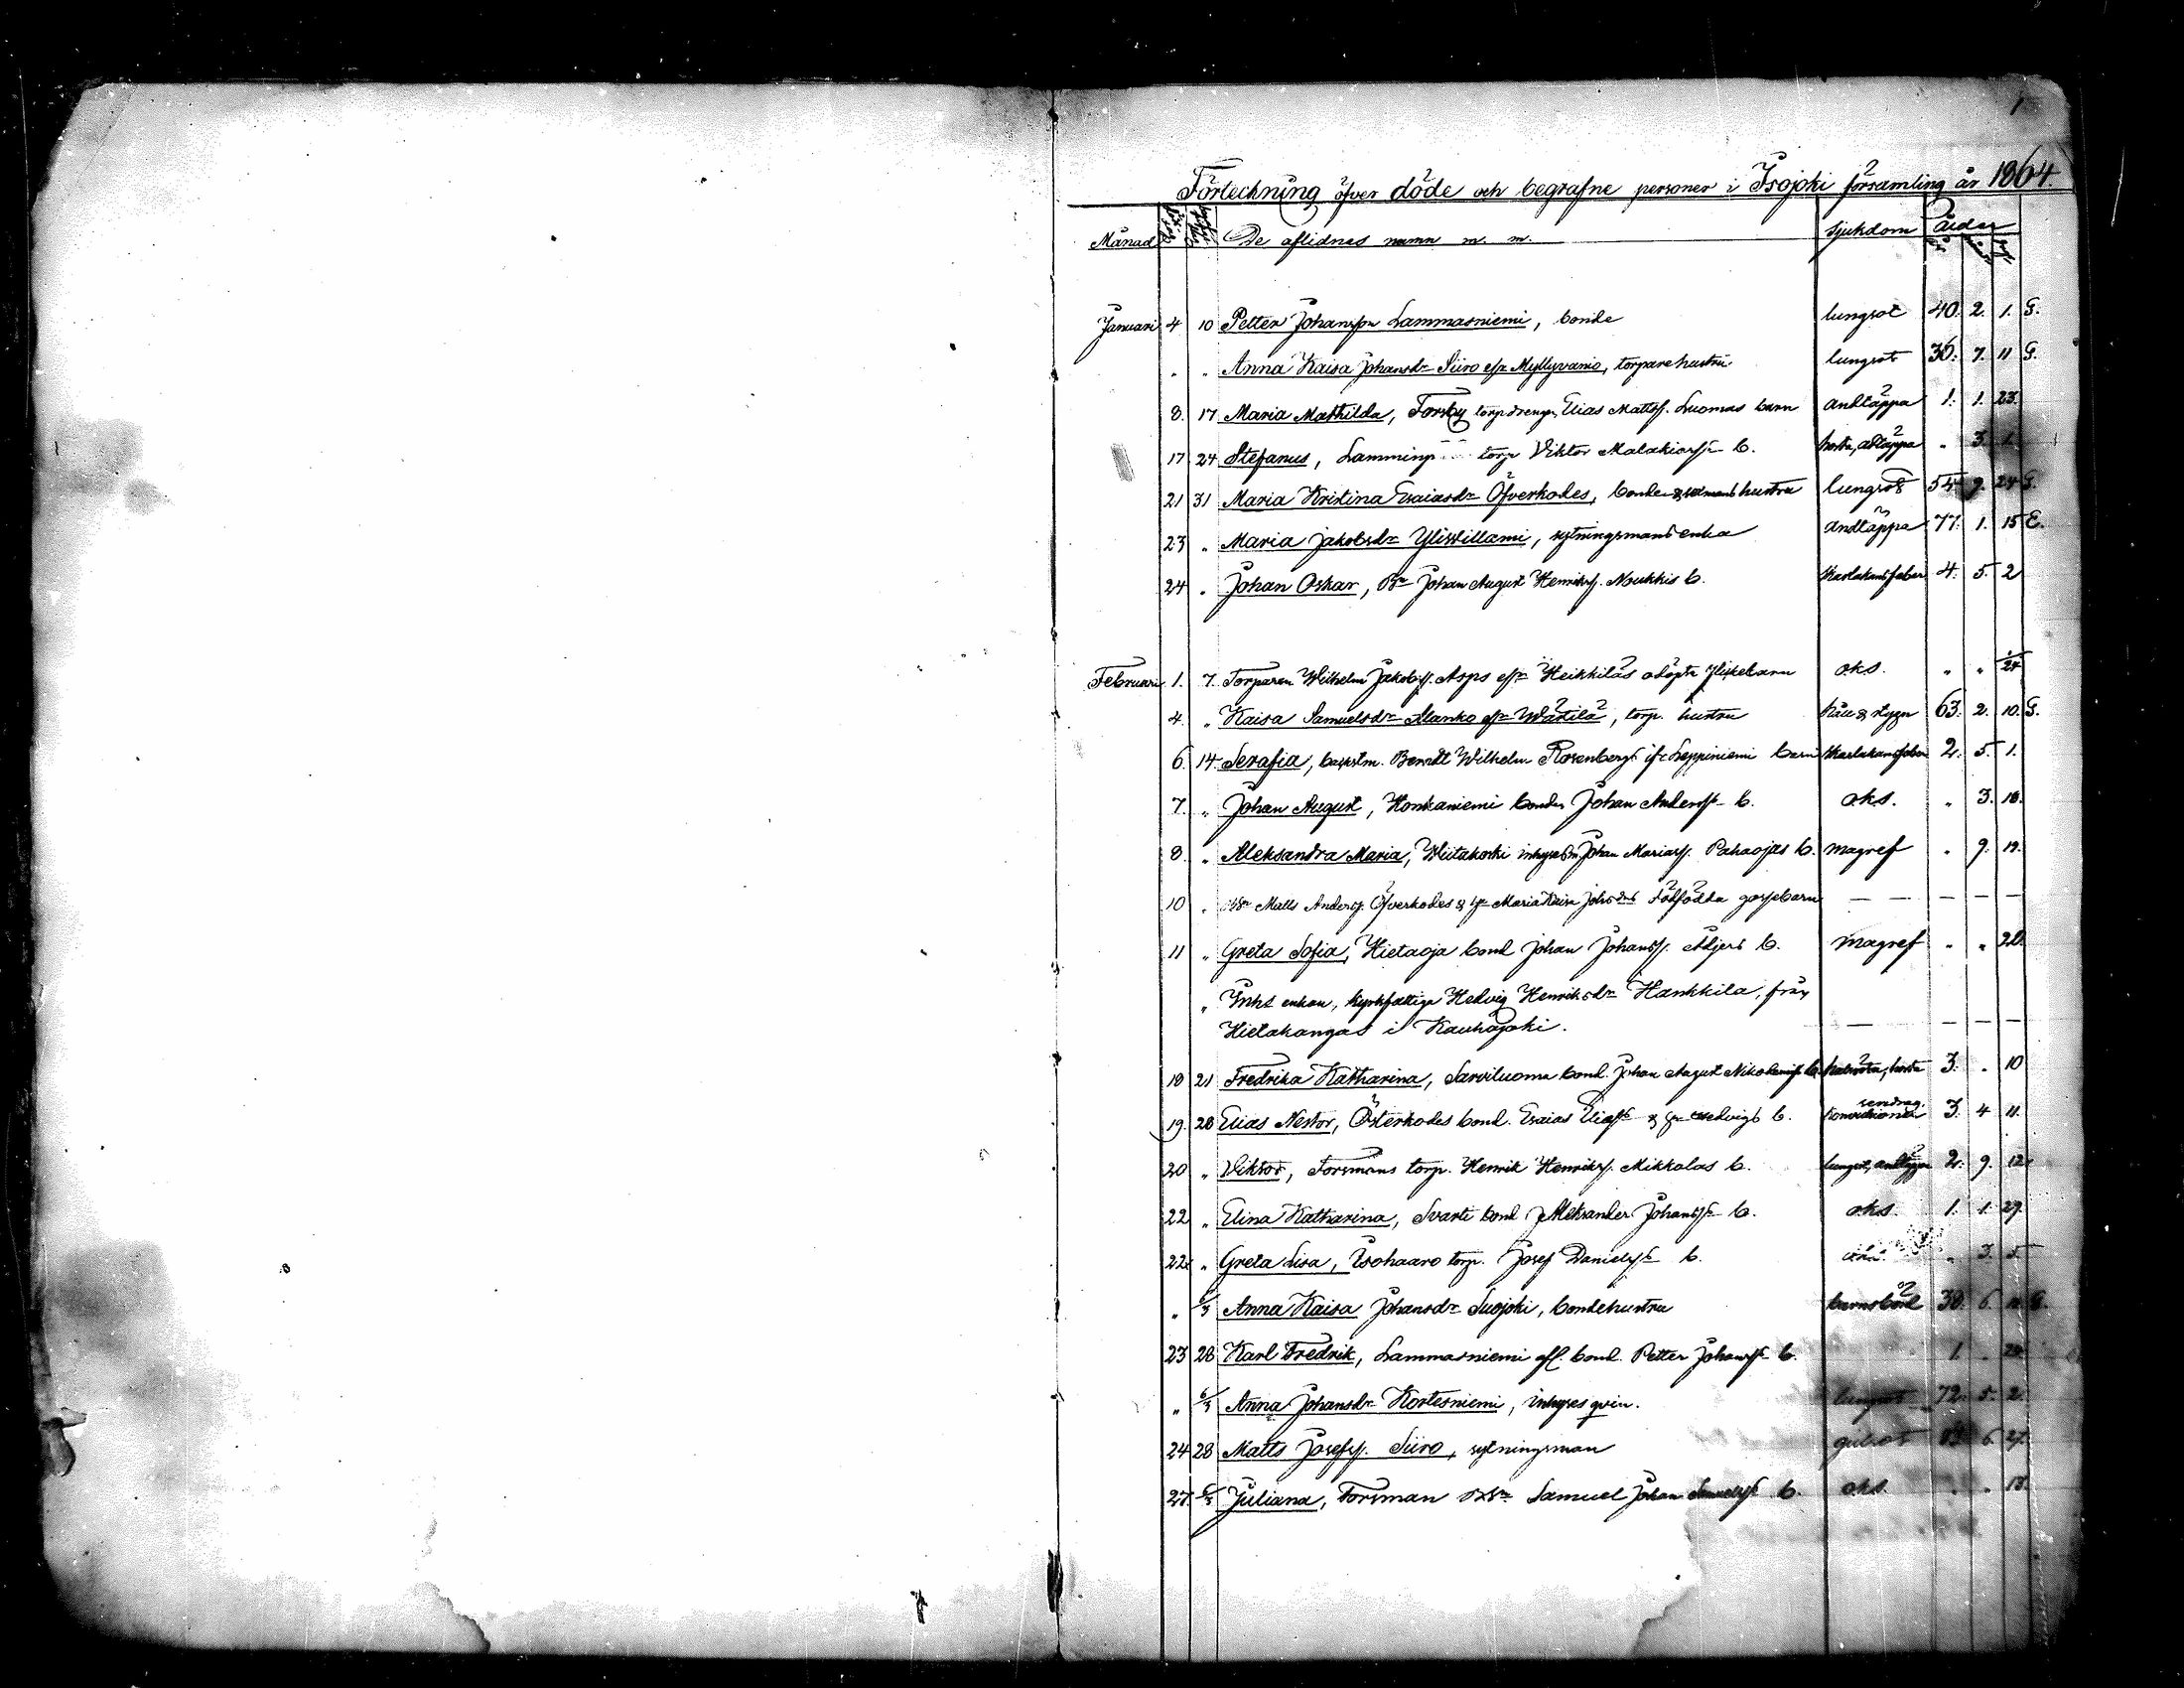 1
Förteckning öfver döde och begrafne personer i Isojoki församling år 1864.
Månad De aflidnes namn m. m. sjukdom ålder
Januari 4 10 Petter Johansson Lammasniemi, bonde lungsot 40. 2. 1. G.
" " Anna Kaisa Johansdr Siiro eller Myllyvanio, torparehustru lungsot 36. 7. 11 G.
8. 17 Maria Mathilda, Forsby torp drengen Elias Mattss. Luomas barn andtäppa 1. 1. 23.
17 24 Stefanus, torp Viktor Malakiass b. hosta, " 3. 1.
21 31 Maria Kristina Esaiasdr Öfverkodes, bonde hustru lungsot 54. 9. 24 G.
23 " Maria Jakobsdr Yliviillami, sytningsmans enka andtäppa 77. 1. 15 E.
24 " Johan Oskar, Johan August Henrikss. Noukkis b. Skarlakansfeber 4. 5. 2
Februari 1. 7. Torparen Wilhelm Jakobss. Asps eller Heikkiläs odöpta flickebarn oks. " " 24
4. " Kaisa Samuelsdr Alanko eller Wästilä, torp. hustru håll & stygn 63. 2. 10. G.
6. 14. Serafia, backstm. Berndt Wilhelm Rosenbergs Leppiniemi barn Skarlakansfeber 2. 5. 1.
7. " Johan August, Honkaniemi bonden Johan Anderss b. oks. " 3. 18.
8. " Aleksandra Maria, Wiitakoski inhyses Johan Mariass. Pahaojas b. magref " 9. 19.
10 " Matts Anderss. Öfverkodes & Maria Kaisa Johsdrs gossebarn — — — —
11 " Greta Sofia, Hietaoja bond Johan Johanss. b. magref " " 20.
" Inhs enkan, kyrkfattiga Hedvig Henriksdr Hankkila, från
Hietakangas i Kauhajoki. — — — —
18 21 Fredrika Katharina, Sarviluoma bond. Johan August b. hosta 3. " 10
19. 28 Elias Nestor, Österkodes bond. Esaias Eliass & Hedvigs b. sendrag. 3. 4 11.
20 " Viktor, Forsmans torp. Henrik Henrikss. Mikkolas b. lungsot, andtäppa 2. 9. 12
22 " Elina Katharina, Svarti bond Aleksander Johanss b. oks. 1. 1. 29.
22 " Greta Lisa, Isohaaro torp. Josef Danielss b. " 3. 5.
" 6/3 Anna Kaisa Johansdr Suojoki, bondehustru barnsbörd 38. 6. G.
23 28 Karl Fredrik, Lammasniemi afl. bond. Petter Johanss b. 1 "
" 6/3 Anna Johansdr Kortesniemi, inhyses qvin. lungsot 72. 5. 2.
24 28 Matts Josefss. Siiro, sytningsman gulsot 6 27.
27. 6/3 Juliana, Forsman Samuel Johan Samuelss b. oks. " " 13.